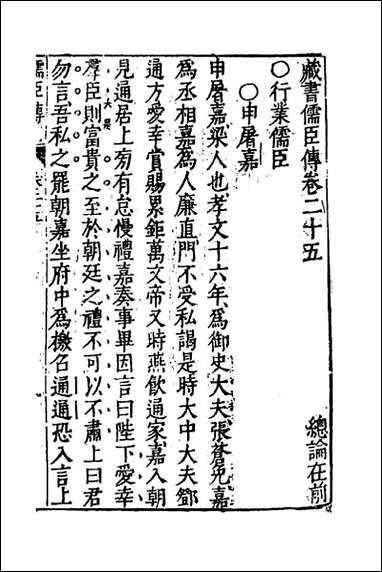 藏書儒臣傳卷二十五
總論在前
○行業儒臣
○申屠嘉
申屠嘉梁人也孝文十六年為御史大夫張蒼免嘉
為丞相嘉為人廉直門不受私謁是時大中大夫鄧
通方愛幸賞賜累鉅萬文帝又時燕飲通家嘉入朝
見通居上旁有怠慢禮嘉奏事畢因言曰陛下愛幸
羣臣則富貴之至於朝廷之禮不可以不肅上曰君
大是
勿言吾私之罷朝嘉坐府中為檄召通通恐入言上
儒臣傳